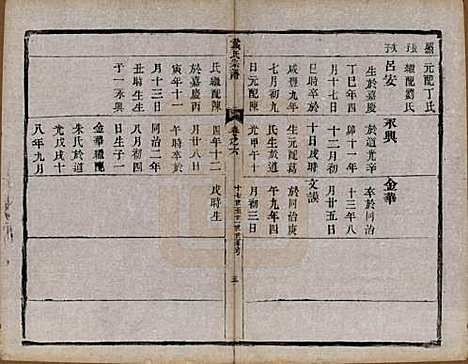 元配丁氏
繼配鄒氏
呂安
生於嘉慶
丁巳年四
月十七日
巳時卒於
咸豐九年
七月初九
日元配陳
氏繼配陳
於嘉慶丙
寅年十一
月十三日
丑時生生
子一永興
永興
於道光辛
卯十一年
十二月初
十日戌時
生元配葛
氏生於道
光甲午十
四年十二
月廿八日
午時卒於
同治二年
八月初四
日生子一
金華繼配
朱氏於道
光戊戌十
八年九月
金華
卒於同治
十三年八
月廿五日
文誤
於同治庚
午九年四
月初三日
戌時生
戴氏宗譜
卷之六
五